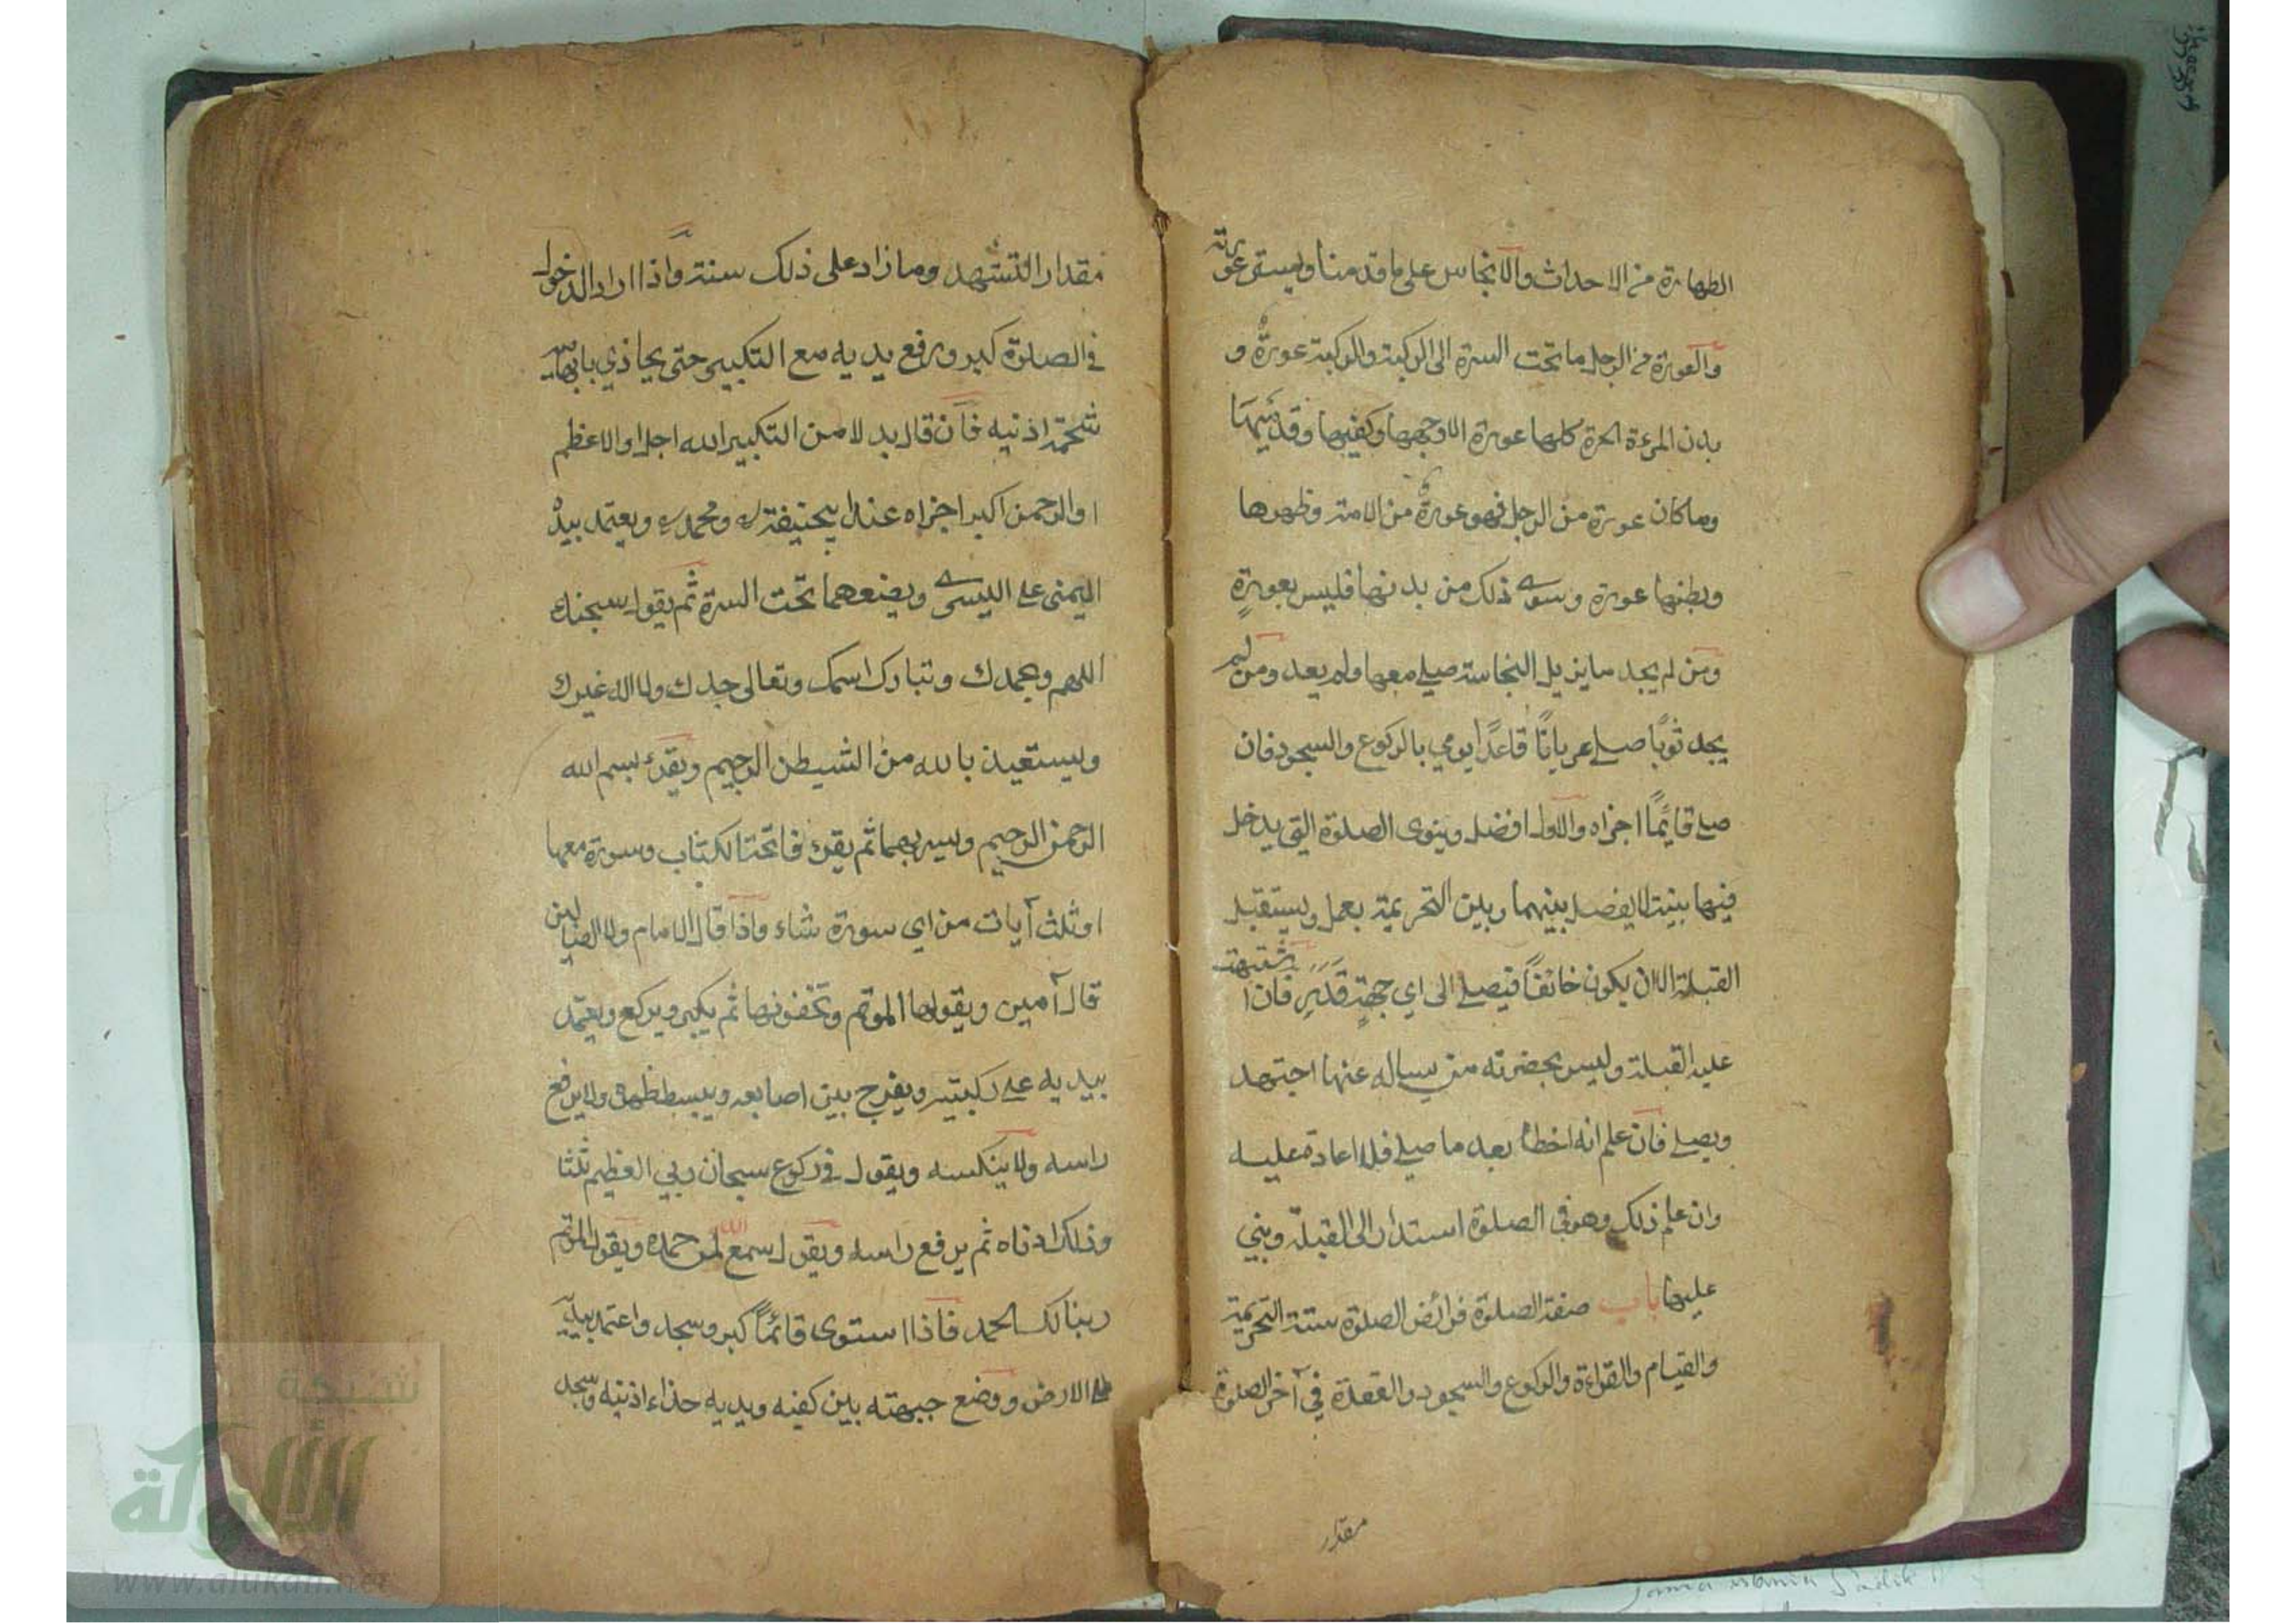 الطهارة من الاحداث والانجاس على ما قدمنا ويستر عورته
والعورة من الرجل ما تحت السرة الى الركبة والركبة عورة و
بدن المرءة الحرة كلها عورة الا وجهها وكفيها وقدميها
وما كان عورة من الرجل فهو عورة من الامة وظهرها
وبطنها عورة وسوى ذلك من بدنها فليس بعورة
ومن لم يجد ما يزيل النجاسة صلى معها ولم يعد ومن لم
يجد ثوبًا صلى عريانًا قاعدًا يومي بالركوع والسجود فان
صلى قايمًا اجزاه والاول افضل وينوى الصلوة التي يدخل
فيها بنيت لا يفصل بينهما وبين التحريمة بعمل ويستقبل
القبلة الا ان يكون خائفًا فيصلى الى اي جهةٍ قَدَرَ فان اشتبهت
عليه القبلة وليس بحضرته من يساله عنها اجتهد
ويصلى فان علم انه اخطاء بعد ما صلى فلا اعادة عليه
وان علم ذلك وهو في الصلوة استدار الى القبلة وبني
عليها باب صفة الصلوة فرائض الصلوة ستة التحريمة
والقيام والقراءة والركوع والسجود والقعدة في آخر الصلوة
مقدار
مقدار التشهد وما زاد على ذلك سنة واذا اراد الدخول
في الصلوة كبر ورفع يديه مع التكبير حتى يحاذي بابهاميه
شحمة اذنيه فان قال بدلا من التكبير الله اجل او الاعظم
او الرحمن اكبر اجزاه عند ابيحنيفة ومحمد ويعتمد بيده
اليمنى على اليسرى ويضعهما تحت السرة ثم يقول سبحنك
اللهم وبحمدك وتبارك اسمك وتعالى جدك ولا اله غيرك
ويستعيذ بالله من الشيطن الرجيم ويقرء بسم الله
الرحمن الرحيم ويسر بهما ثم يقرء فاتحة الكتاب وسورة معها
او ثلث آيات من اي سورة شاء واذا قال الامام ولا الضالين
قال آمين ويقولها الموتم وتخفونها ثم يكبر ويركع ويعتمد
بيديه على ركبتيه ويفرج بين اصابعه ويبسط ظهره ولا يرفع
راسه ولا ينكسه ويقول في ركوع سبحان ربي العظيم ثلثا
وذلك ادناه ثم يرفع راسه ويقول سمع الله لمن حمده ويقول الموتم
ربنا لك الحمد فاذا استوى قائمًا كبر وسجد واعتمد بيديه
على الارض ووضع جبهته بين كفيه ويديه حذاء اذنيه وسجد
شبكة
الألوكة
www.alukah.net